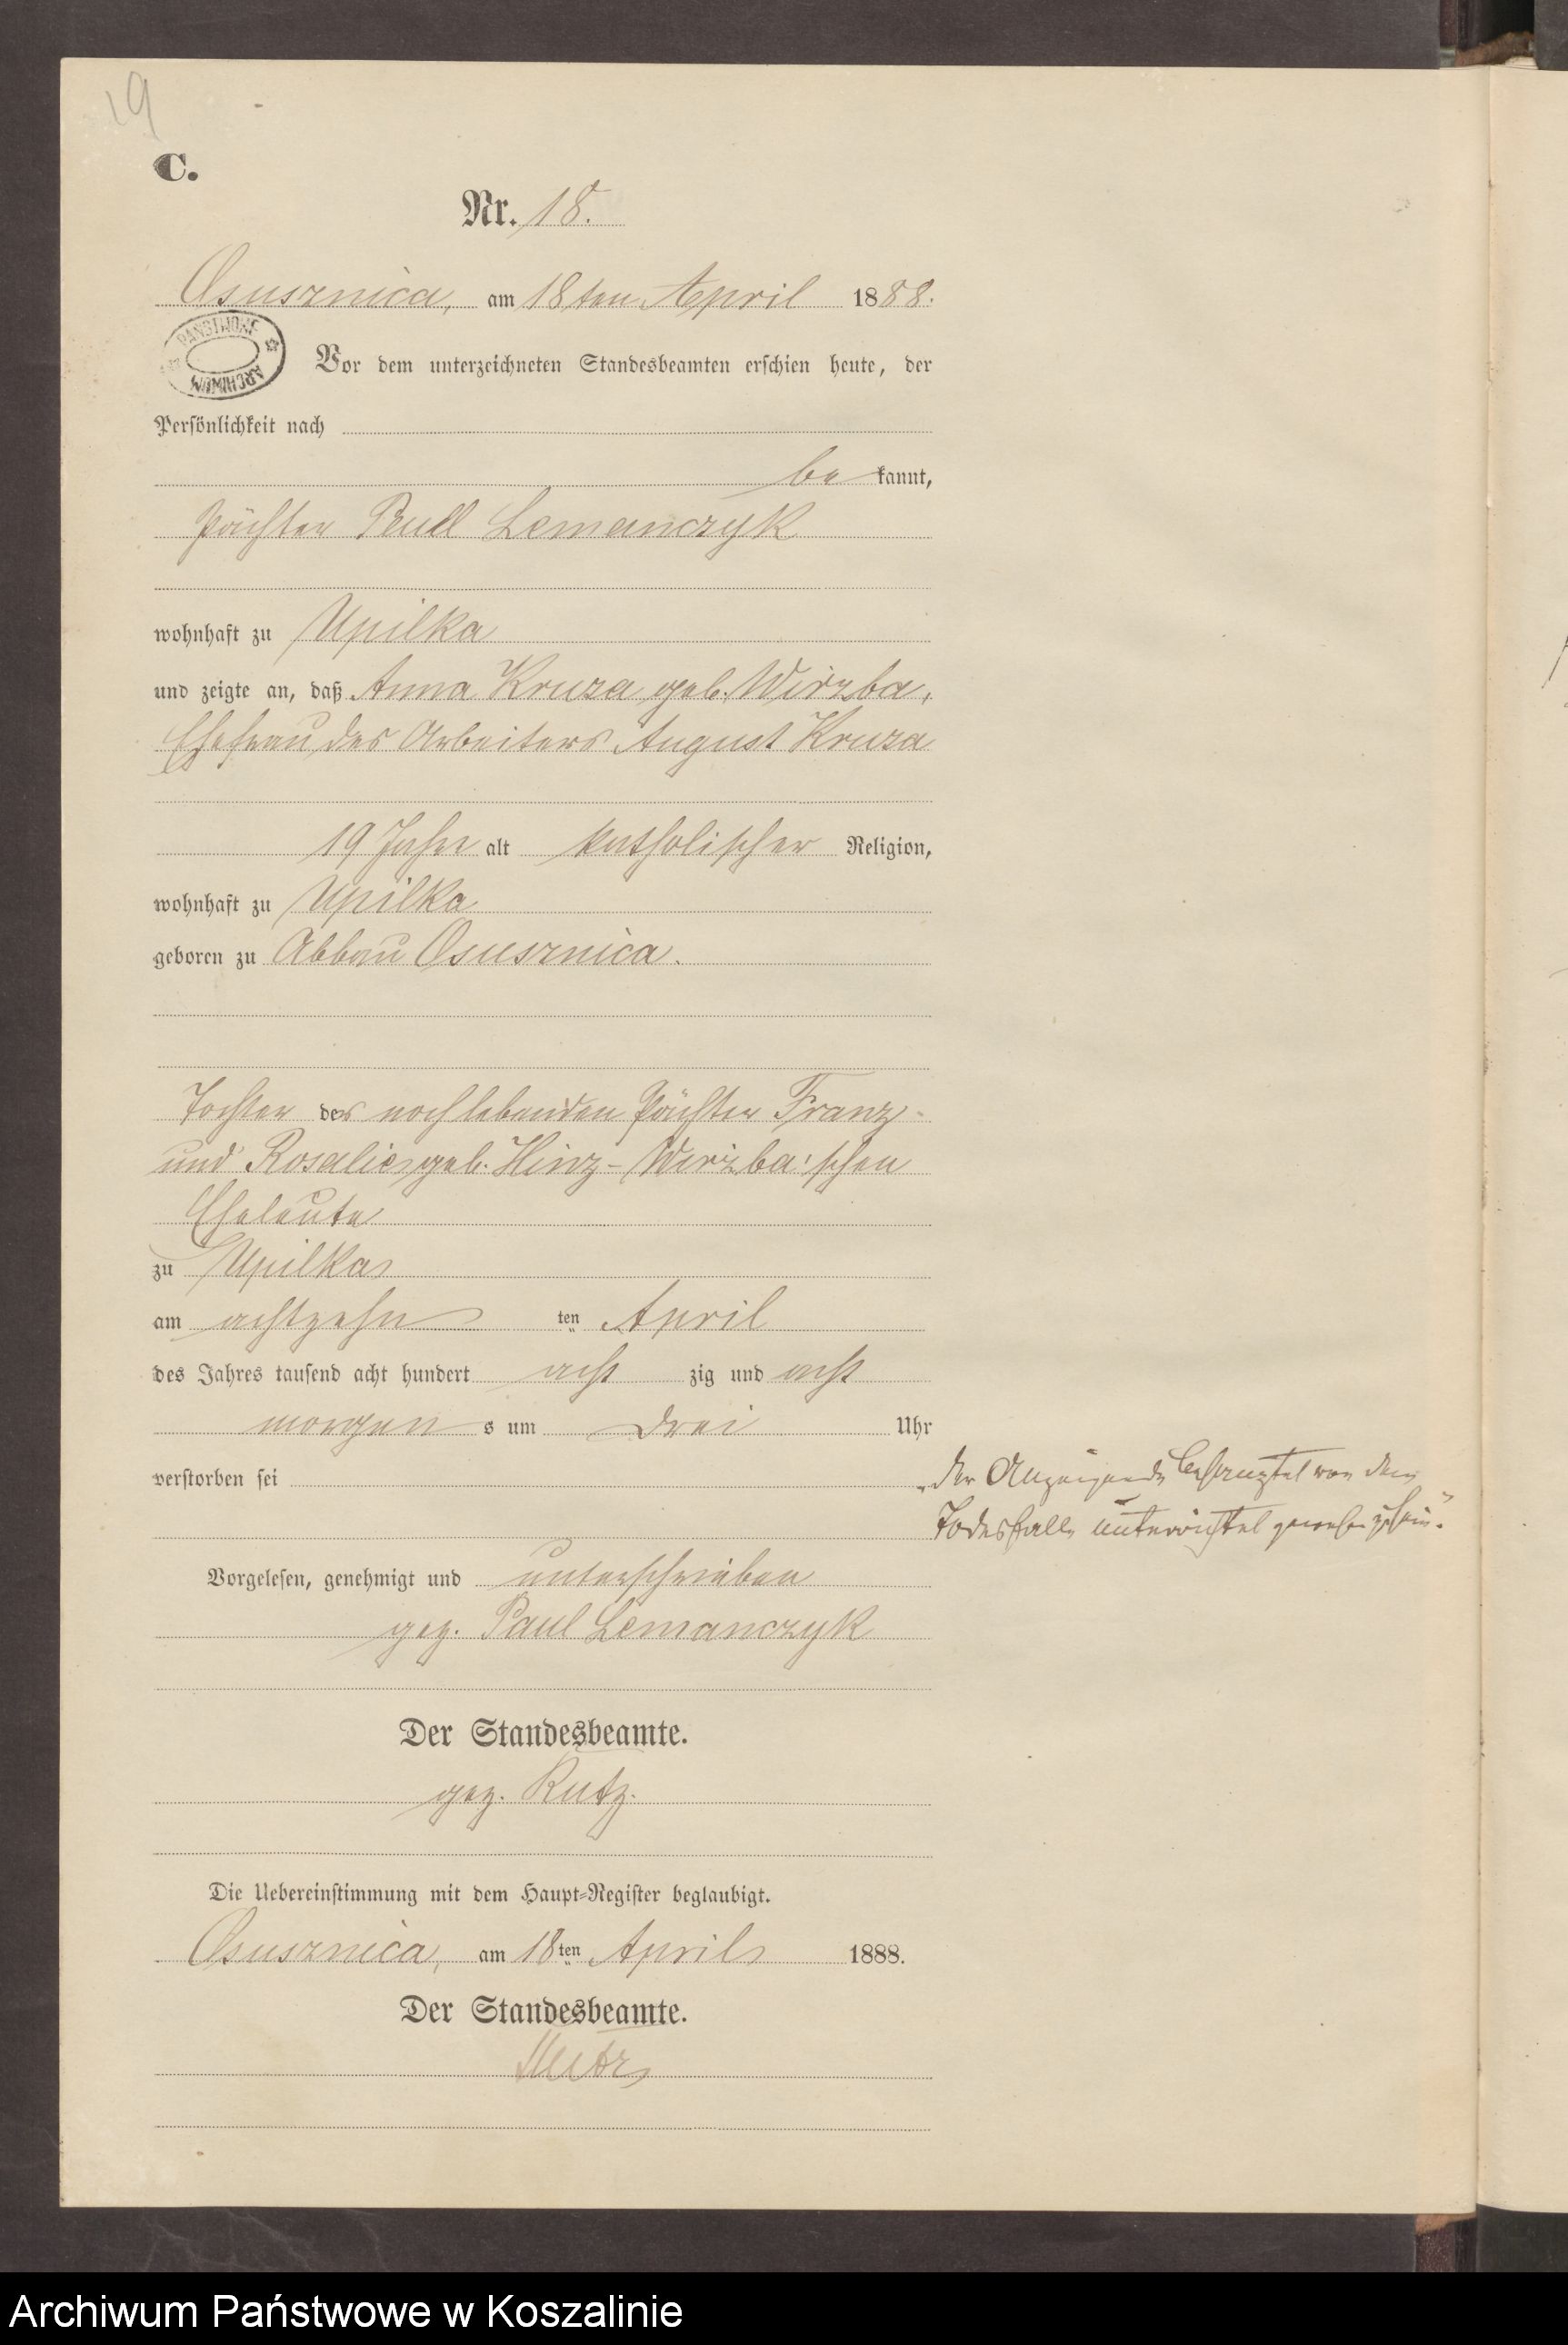 19
C.
Nr. 18.
Osusznica, am 18ten April 1888.
PAŃSTWOWE ARCHIWUM
Vor dem unterzeichneten Standesbeamten erschien heute, der
Persönlichkeit nach
be kannt,
Pächter Paul Lemanczyk
wohnhaft zu Upilka
und zeigte an, daß Anna Kruza geb. Wirzba,
Ehefrau des Arbeiters August Kruza
19 Jahre alt katholischer Religion,
wohnhaft zu Upilka
geboren zu Abbau Osusznica.
Tochter der noch lebenden Pächter Franz
und Rosalie geb. Hinz-Wirzba'schen
Eheleute
zu Upilka
am achtzehn ten April
des Jahres tausend acht hundert acht zig und acht
morgen s um drei Uhr
verstorben sei
Der Anzeigende behauptet von dem
Todesfalle unterrichtet gewesen zu sein.
Vorgelesen, genehmigt und unterschrieben
gez. Paul Lemanczyk
Der Standesbeamte.
gez. Kutz.
Die Uebereinstimmung mit dem Haupt-Register beglaubigt.
Osusznica, am 18ten April 1888.
Der Standesbeamte.
Archiwum Państwowe w Koszalinie